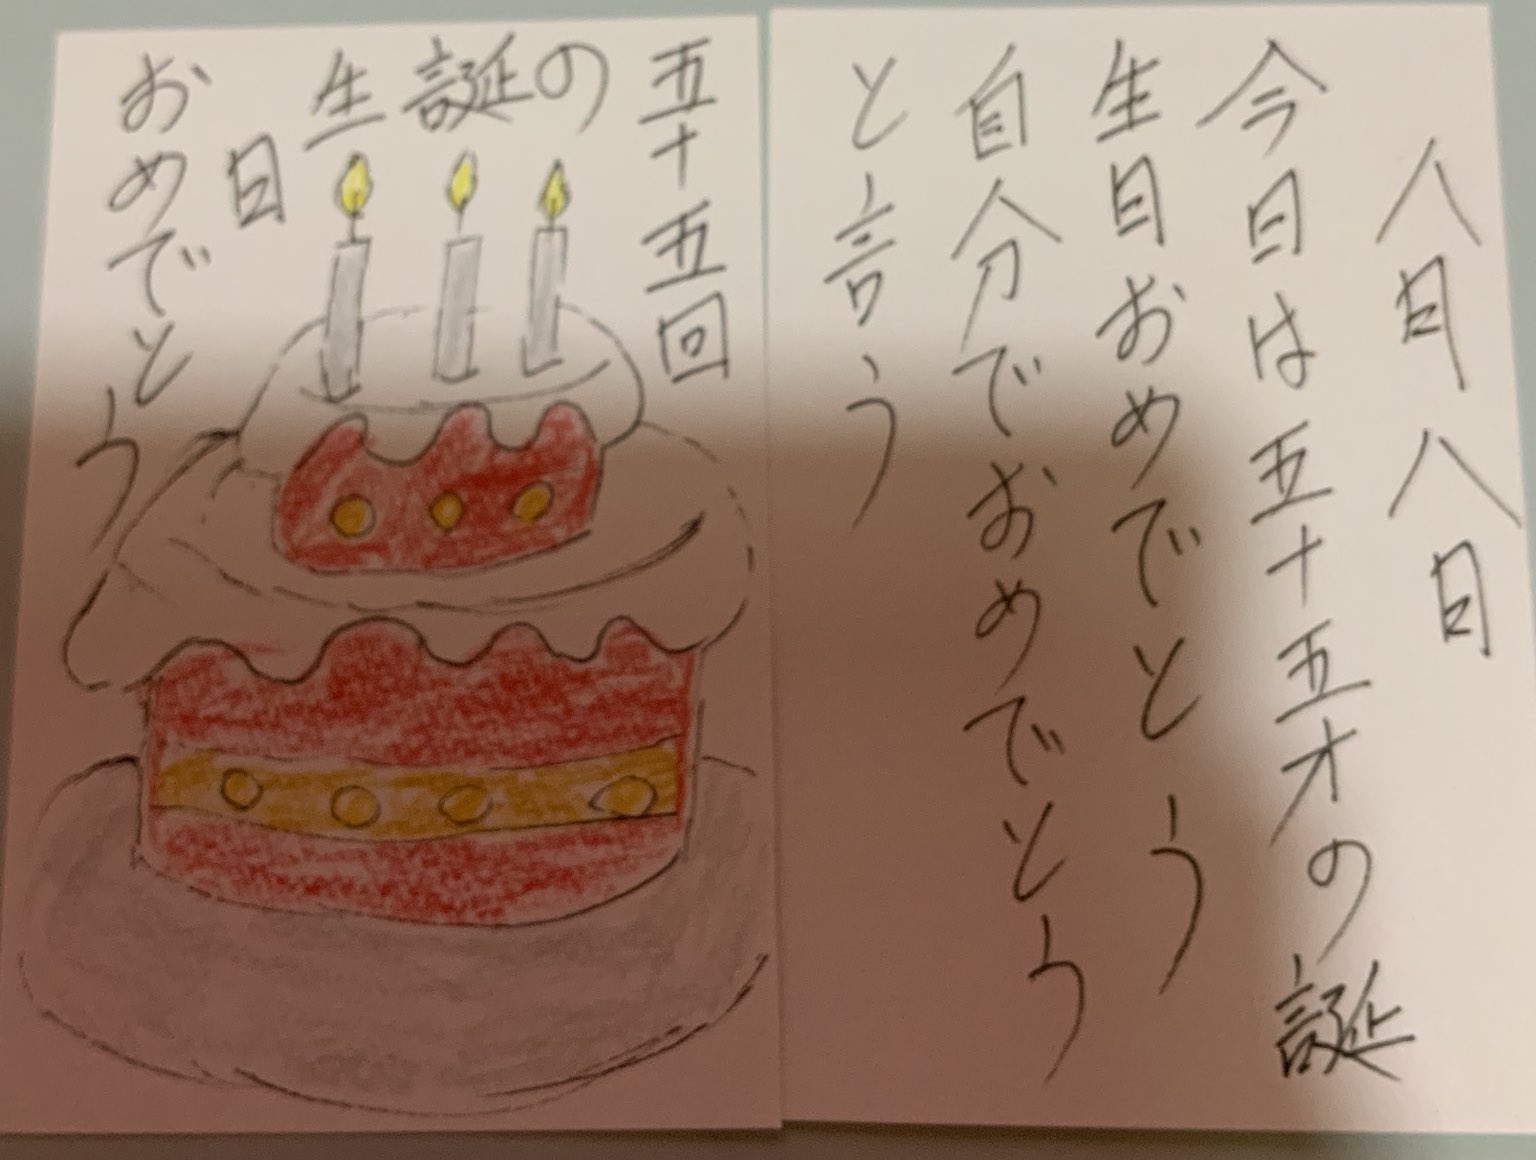 八月八日
今日は五十五才の誕
生日おめでとう
自分でおめでとう
と言う
五十五回
の誕生
日
おめでとう